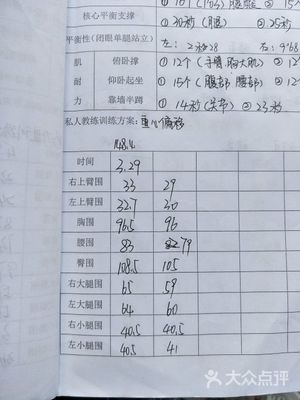 核心平衡支撑 ①30秒(腹) ②25秒
平衡性(闭眼单腿站立) 左: 2秒28 右: 9"68
肌 俯卧撑 ①12个(手臂.胸大肌) ②12
耐 仰卧起坐 ①15个(腹部 腰部) ②12
力 靠墙半蹲 ①14秒(关节) ②23秒
私人教练训练方案:重心偏移
148.4
时间 3.29
右上臂围 33 29
左上臂围 32.7 30
胸围 96.5 96
腰围 83 79
臀围 108.5 105
右大腿围 65 59
左大腿围 64 60
右小腿围 40.5 40.5
左小腿围 40.5 41
大众点评